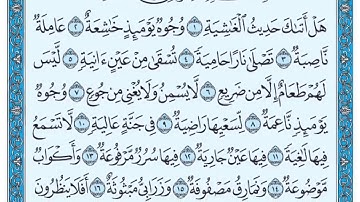 هَلْ أَتَىٰكَ حَدِيثُ ٱلْغَٰشِيَةِ ١ وُجُوهٌ يَوْمَئِذٍ خَٰشِعَةٌ ٢ عَامِلَةٌ
نَّاصِبَةٌ ٣ تَصْلَىٰ نَارًا حَامِيَةً ٤ تُسْقَىٰ مِنْ عَيْنٍ ءَانِيَةٍ ٥ لَّيْسَ
لَهُمْ طَعَامٌ إِلَّا مِن ضَرِيعٍ ٦ لَّا يُسْمِنُ وَلَا يُغْنِى مِن جُوعٍ ٧ وُجُوهٌ
يَوْمَئِذٍ نَّاعِمَةٌ ٨ لِّسَعْيِهَا رَاضِيَةٌ ٩ فِى جَنَّةٍ عَالِيَةٍ ١٠ لَّا تَسْمَعُ
فِيهَا لَٰغِيَةً ١١ فِيهَا عَيْنٌ جَارِيَةٌ ١٢ فِيهَا سُرُرٌ مَّرْفُوعَةٌ ١٣ وَأَكْوَابٌ
مَّوْضُوعَةٌ ١٤ وَنَمَارِقُ مَصْفُوفَةٌ ١٥ وَزَرَابِىُّ مَبْثُوثَةٌ ١٦ أَفَلَا يَنظُرُونَ